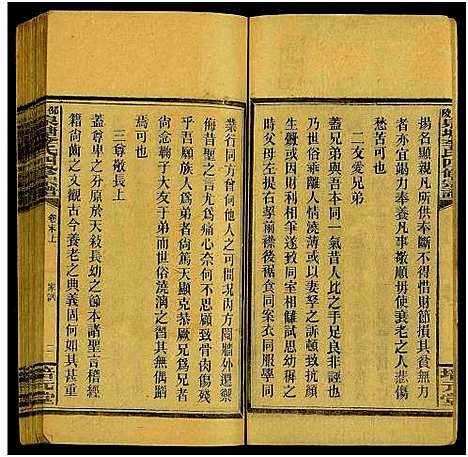 揚名顯親凡所供奉斷不得惜財節損其貧無力
者亦宜竭力奉養凡事敬順毋使衰老之人悲傷
愁苦可也
二友愛兄弟
蓋兄弟與吾本同一氣昔人比之手足良非誣也
乃世俗乖離人情澆薄或以妻孥之訴頓致抗顏
或以財利相爭遂致同室
父母左提右挈前襟後裾食同案衣同服學同
業行同方曾何他人之可間況內閱牆外遷禦
侮昔聖之言尤爲痛心奈何不思顧致骨肉傷殘
乎吾願族人爲弟者尚篤天顯克恭厥兄爲兄者
尚念鞠子大友于弟而世俗澆漓之習其無偶蹈
焉可也
三尊敬長上
蓋尊卑之分原於天敍長幼之節本諸聖言稽經
籍尚齒之文觀古今養老之典義固何如其甚重
卷末上
家訓